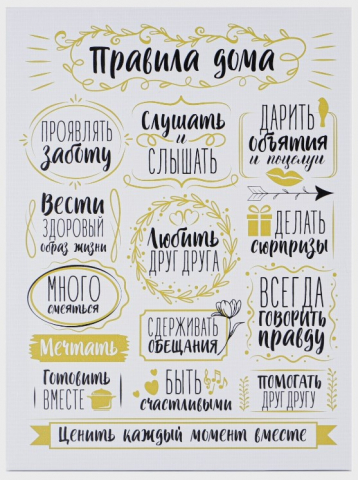 Правила дома
ПРОЯВЛЯТЬ
заботу
Слушать
и
СЛЫШАТЬ
ДАРИТЬ
объятия
и поцелуи
Вести
ЗДОРОВЫЙ
образ жизни
Любить
ДРУГ ДРУГА
ДЕЛАТЬ
сюрпризы
МНОГО
смеяться
СДЕРЖИВАТЬ
ОБЕЩАНИЯ
ВСЕГДА
ГОВОРИТЬ
правду
Мечтать
Готовить
ВМЕСТЕ
БЫТЬ
счастливыми
ПОМОГАТЬ
ДРУГ ДРУГУ
Ценить каждый момент вместе